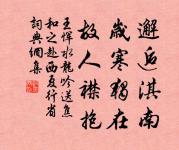 邂逅淇南
歲寒獨在
故人襟抱
王惲水龍吟送焦
和之赴西夏行省
詞典網集